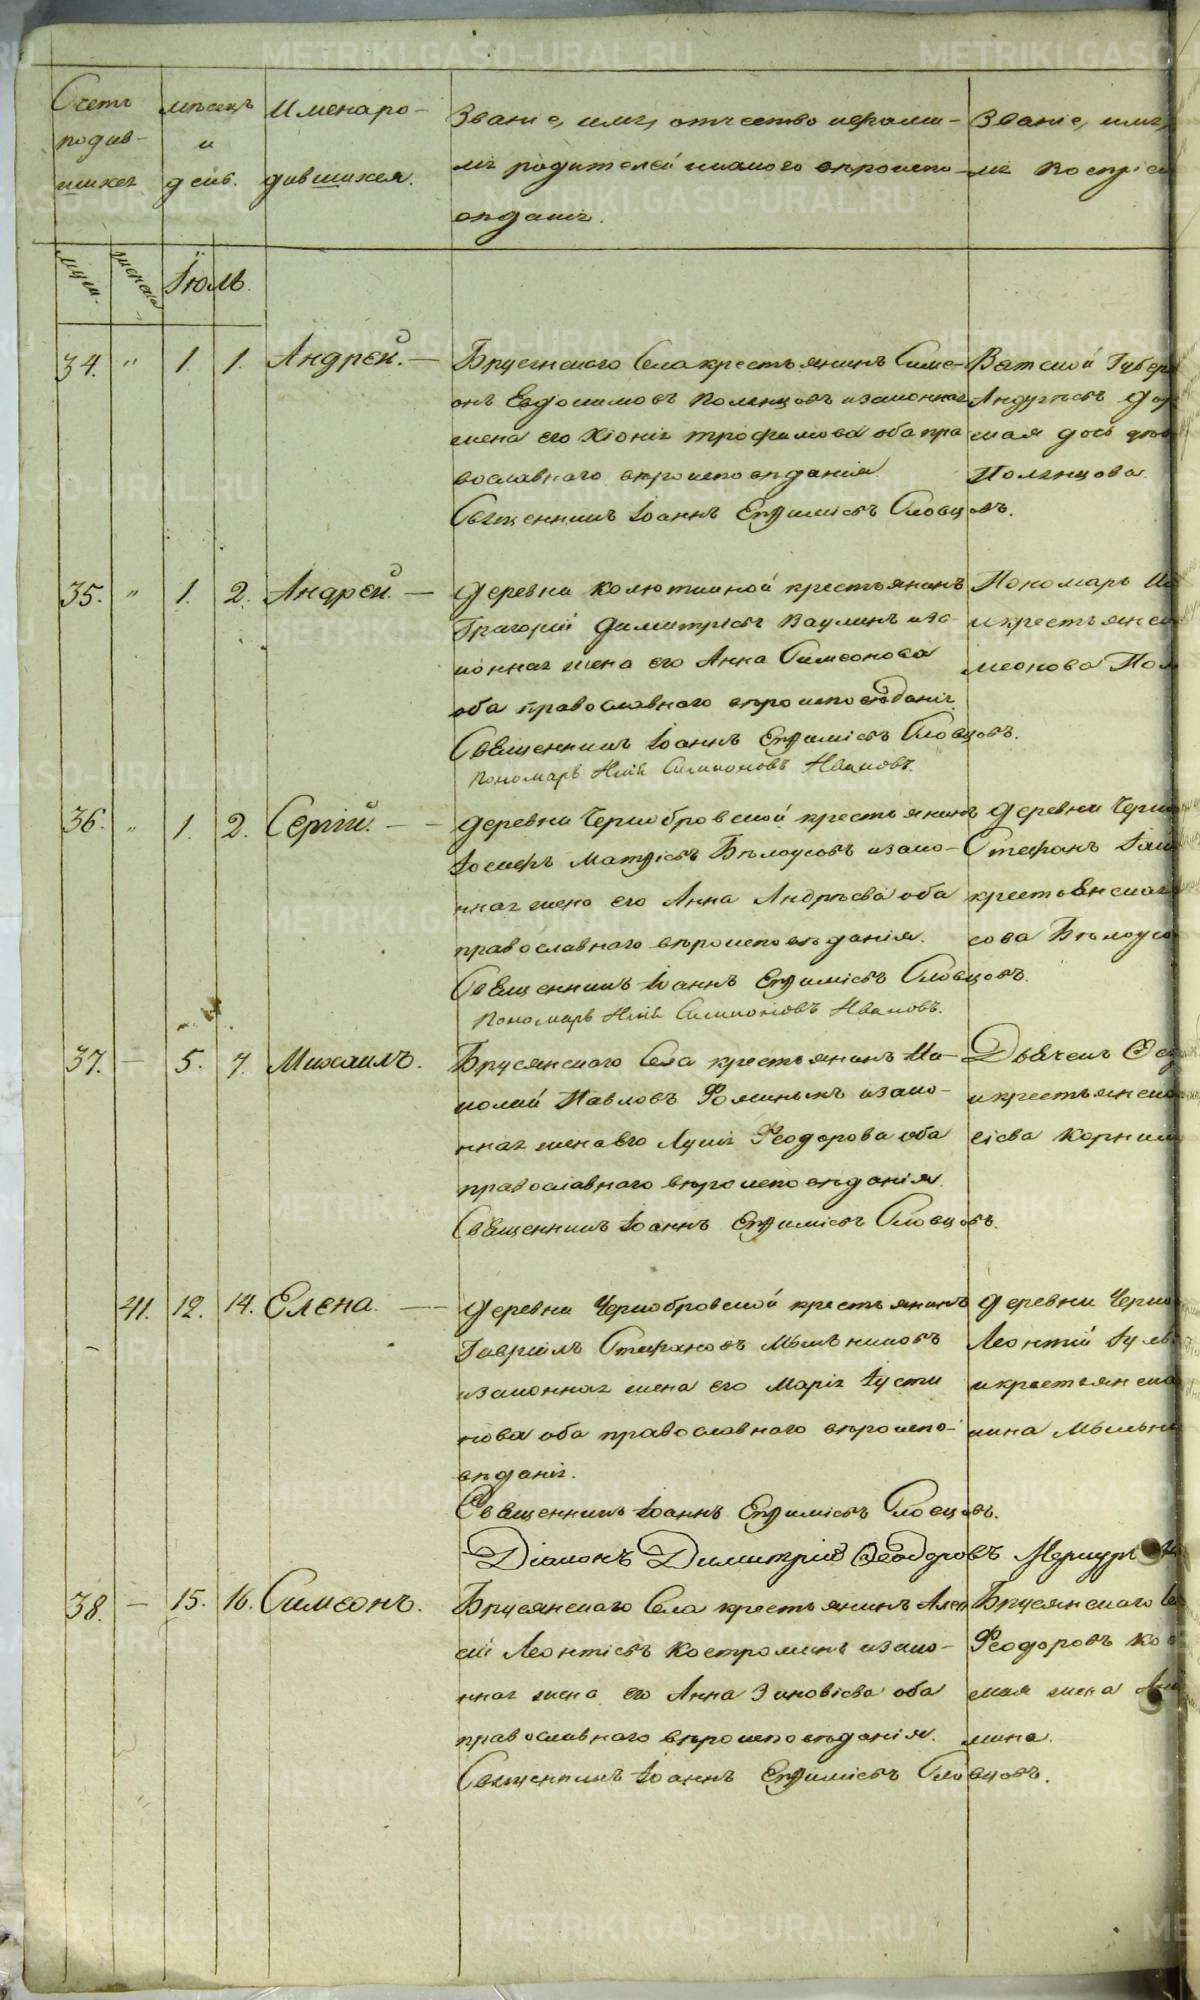 METRIKI.GASO-URAL.RU
Счетъ мѣсяцъ Именаро-
родив- и
шихся дѣйв. дившихся.
Званіе, имя, отчество ифами-
лія родителей икакого вѣроиспо-
вѣданія.
Званіе, имя,
лія воспріе
муж. женска Іюль.
34. " 1. 1. Андрей. —
Брусянского Села крестьянинъ Симе-
онъ Евдокимовъ Поленцовъ изаконная
жена его Хіонія трофимова оба пра
вославнаго вѣроисповѣданія
Священникъ Іоаннъ Евѳиміевъ Словцовъ.
Вятской Губер
ская дочь
Поленцова.
35. " 1. 2. Андрей. —
деревни Колюткиной крестьянинъ
Григорій Димитріевъ Ваулинъ иза-
конная жена его Анна Симеонова
оба православнаго вѣроисповѣданія.
Священникъ Іоаннъ Евѳиміевъ Словцовъ.
Пономарь Илія Симионовъ Ивановъ.
Пономарь Ил
икрестьянска
меонова Пол
36. " 1. 2. Сергій. —
деревни Чернобровской крестьянинъ
Іосифъ Матѳіевъ Бѣлоусовъ изако-
нная жена его Анна Андрѣева оба
православнаго вѣроисповѣданія.
Священникъ Іоаннъ Евѳиміевъ Словцовъ.
Пономарь Илія Симионовъ Ивановъ.
деревни Черно
Стефанъ Іак
крестьянская
сова Бѣлоусо
37. — 5. 7. Михаилъ.
Брусянскаго Села крестьянинъ Ни-
колай Павловъ Фоминыхъ изако-
нная женаЕго Лукія Ѳеодорова оба
православнаго вѣроисповѣданія
Священникъ Іоаннъ Евѳиміевъ Словцовъ.
Дьячекъ Ѳео
икрестьянска
сіева Корнил
41. 12. 14. Елена. —
деревни Чернобровской крестьянинъ
Гавріилъ Стефановъ Мыльниковъ
изаконная жена его Марія Іусти
нова оба православнаго вѣроиспо-
вѣданія.
Священникъ Іоаннъ Евѳиміевъ Словцовъ.
Діаконъ Димитрій Ѳеодоровъ Меркурь
деревни Черно
Леонтій Іул
икрестьянска
кина Мыльни
38. — 15. 16. Симеонъ.
Брусянскаго Села крестьянинъ Алек
сій Леонтіевъ Костроминъ изако-
нная жена его Анна Зиновіева оба
православнаго вѣроисповѣданія.
Священникъ Іоаннъ Евѳиміевъ Словцовъ.
Брусянскаго Се
Ѳеодоровъ Ко
ская жена
мина.